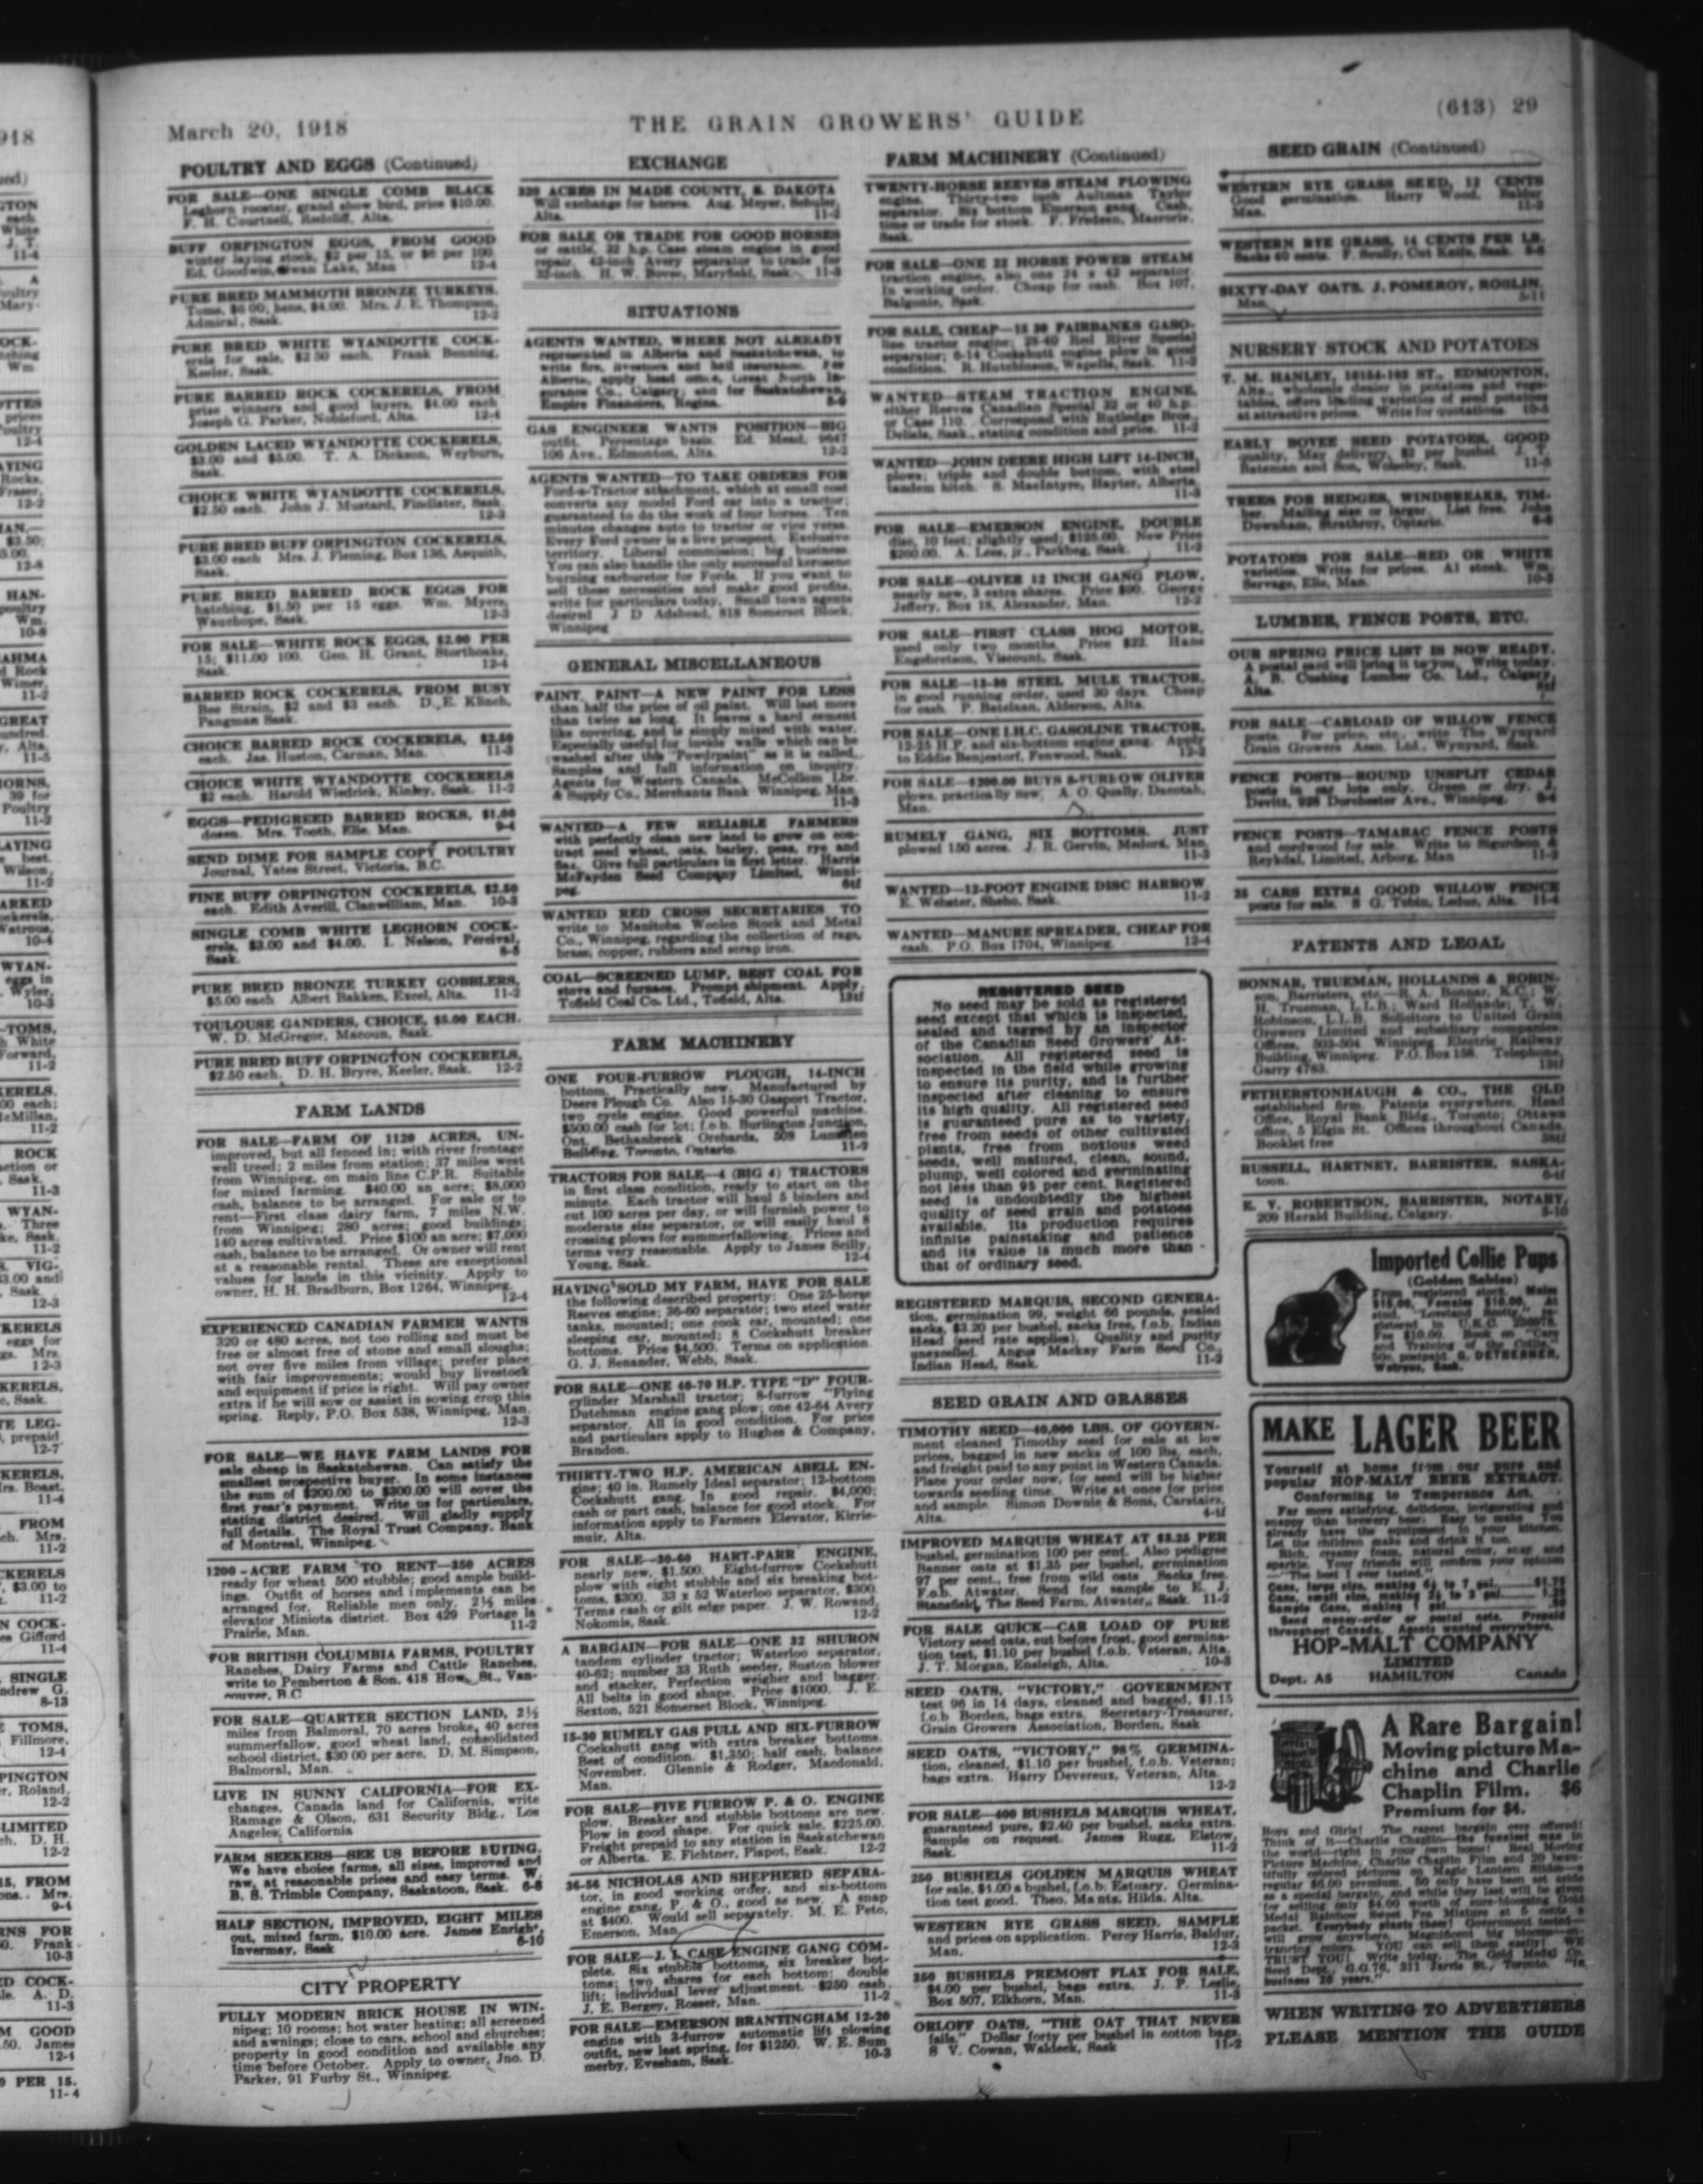 March 20, 1918
THE GRAIN GROWERS' GUIDE
(613) 29
POULTRY AND EGGS (Continued)
FOR SALE—ONE SINGLE COMB BLACK
Leghorn rooster, grand show bird, price $10.00.
F. H. Courtnell, Redcliff, Alta.
BUFF ORPINGTON EGGS, FROM GOOD
winter laying stock, $2 per 15, or $6 per 100.
Ed. Goodwin, Swan Lake, Man 12-4
PURE BRED MAMMOTH BRONZE TURKEYS.
Toms, $6.00; hens, $4.00. Mrs. J. E. Thompson,
Admiral, Sask. 12-2
PURE BRED WHITE WYANDOTTE COCK-
erels for sale, $2.50 each. Frank Benning,
Keeler, Sask.
PURE BARRED ROCK COCKERELS, FROM
prize winners and good layers, $4.00 each
Joseph G. Parker, Nobleford, Alta. 12-4
GOLDEN LACED WYANDOTTE COCKERELS,
$3.00 and $5.00. T. A. Dickson, Weyburn,
Sask.
CHOICE WHITE WYANDOTTE COCKERELS,
$2.50 each. John J. Mustard, Findlater, Sask.
12-3
PURE BRED BUFF ORPINGTON COCKERELS,
$3.00 each Mrs. J. Fleming, Box 136, Asquith,
Sask.
PURE BRED BARRED ROCK EGGS FOR
hatching, $1.50 per 15 eggs. Wm. Myers,
Wauchope, Sask. 12-3
FOR SALE—WHITE ROCK EGGS, $2.00 PER
15; $11.00 100. Geo. H. Grant, Storthoaks,
Sask 12-4
BARRED ROCK COCKERELS, FROM BUSY
Bee Strain, $2 and $3 each. D. E. Klinch,
Pangman Sask.
CHOICE BARRED ROCK COCKERELS, $2.50
each. Jas. Huston, Carman, Man. 11-3
CHOICE WHITE WYANDOTTE COCKERELS
$2 each. Harold Wiedrick, Kinley, Sask. 11-2
EGGS—PEDIGREED BARRED ROCKS, $1.00
dozen. Mrs. Tooth, Elie, Man. 9-4
SEND DIME FOR SAMPLE COPY POULTRY
Journal, Yates Street, Victoria, B.C.
FINE BUFF ORPINGTON COCKERELS, $2.50
each. Edith Averill, Clanwilliam, Man. 10-3
SINGLE COMB WHITE LEGHORN COCK-
erels, $3.00 and $4.00. I. Nelson, Percival,
Sask.
PURE BRED BRONZE TURKEY GOBBLERS,
$5.00 each Albert Bakken, Excel, Alta. 11-2
TOULOUSE GANDERS, CHOICE, $5.00 EACH.
W. D. McGregor, Macoun, Sask.
PURE BRED BUFF ORPINGTON COCKERELS,
$2.50 each. D. H. Bryce, Keeler, Sask. 12-2
FARM LANDS
FOR SALE—FARM OF 1120 ACRES, UN-
improved, but all fenced in; with river frontage
well treed; 2 miles from station; 37 miles west
from Winnipeg, on main line C.P.R. Suitable
for mixed farming. $40.00 an acre; $8,000
cash, balance to be arranged. For sale or to
rent—First class dairy farm, 7 miles N.W.
from Winnipeg; 280 acres; good buildings;
140 acres cultivated. Price $100 an acre; $7,000
cash, balance to be arranged. Or owner will rent
at a reasonable rental. These are exceptional
values for lands in this vicinity. Apply to
owner, H. H. Bradburn, Box 1264, Winnipeg.
12-4
EXPERIENCED CANADIAN FARMER WANTS
320 or 480 acres, not too rolling and must be
free or almost free of stone and small sloughs;
not over five miles from village; prefer place
with fair improvements; would buy livestock
and equipment if price is right. Will pay owner
extra if he will sow or assist in sowing crop this
spring. Reply, P.O. Box 538, Winnipeg, Man.
12-3
FOR SALE—WE HAVE FARM LANDS FOR
sale cheap in Saskatchewan. Can satisfy the
smallest prospective buyer. In some instances
the sum of $200.00 to $300.00 will cover the
first year's payment. Write us for particulars,
stating district desired. Will gladly supply
full details. The Royal Trust Company, Bank
of Montreal, Winnipeg.
1200-ACRE FARM TO RENT—350 ACRES
ready for wheat 500 stubble; good ample build-
ings. Outfit of horses and implements can be
arranged for. Reliable men only. 2½ miles
elevator Miniota district. Box 429 Portage la
Prairie, Man. 11-2
FOR BRITISH COLUMBIA FARMS, POULTRY
Ranches, Dairy Farms and Cattle Ranches,
write to Pemberton & Son, 418 Howe St., Van-
couver, B.C
FOR SALE—QUARTER SECTION LAND, 2½
miles from Balmoral, 70 acres broke, 40 acres
summerfallow, good wheat land, consolidated
school district, $30 00 per acre. D. M. Simpson,
Balmoral, Man.
LIVE IN SUNNY CALIFORNIA—FOR EX-
changes, Canada land for California, write
Ramage & Olson, 631 Security Bldg., Los
Angeles, California
FARM SEEKERS—SEE US BEFORE BUYING.
We have choice farms, all sizes, improved and
raw, at reasonable prices and easy terms. W.
B. S. Trimble Company, Saskatoon, Sask. 6-8
HALF SECTION, IMPROVED, EIGHT MILES
out, mixed farm, $10.00 acre. James Enright,
Invermay, Sask 6-10
CITY PROPERTY
FULLY MODERN BRICK HOUSE IN WIN-
nipeg; 10 rooms; hot water heating; all screened
and awnings; close to cars, school and churches;
property in good condition and available any
time before October. Apply to owner, Jno. D.
Parker, 91 Furby St., Winnipeg.
EXCHANGE
320 ACRES IN MADE COUNTY, S. DAKOTA
Will exchange for horses. Aug. Meyer, Schuler,
Alta. 11-2
FOR SALE OR TRADE FOR GOOD HORSES
or cattle, 32 h.p. Case steam engine in good
repair. 42-inch Avery separator to trade for
32-inch. H. W. Bover, Maryfield, Sask. 11-3
SITUATIONS
AGENTS WANTED, WHERE NOT ALREADY
represented in Alberta and Saskatchewan, to
write fire, livestock and hail insurance. For
Alberta, apply head office, Great North In-
surance Co., Calgary; and for Saskatchewan,
Empire Financiers, Regina.
GAS ENGINEER WANTS POSITION—BIG
outfit. Percentage basis. Ed. Mead, 9647
106 Ave., Edmonton, Alta. 12-2
AGENTS WANTED—TO TAKE ORDERS FOR
Ford-a-Tractor attachment, which at small cost
converts any model Ford car into a tractor;
guaranteed to do the work of four horses. Ten
minutes changes auto to tractor or vice versa.
Every Ford owner is a live prospect. Exclusive
territory. Liberal commission; big business.
You can also handle the only successful kerosene
burning carburetor for Fords. If you want to
sell these necessities and make good profits,
write for particulars today. Small town agents
desired J D Adshead, 818 Somerset Block,
Winnipeg
GENERAL MISCELLANEOUS
PAINT, PAINT—A NEW PAINT FOR LESS
than half the price of oil paint. Will last more
than twice as long. It leaves a hard cement
like covering, and is simply mixed with water.
Especially useful for inside walls which can be
washed after this "Powdrpaint" as it is called.
Samples and full information on inquiry.
Agents for Western Canada. McCollom Lbr.
& Supply Co., Merchants Bank Winnipeg, Man
11-3
WANTED—A FEW RELIABLE FARMERS
with perfectly clean new land to grow on con-
tract seed wheat, oats, barley, peas, rye and
flax. Give full particulars in first letter. Harris
McFayden Seed Company Limited, Winni-
peg. 6tf
WANTED RED CROSS SECRETARIES TO
write to Manitoba Woolen Stock and Metal
Co., Winnipeg, regarding the collection of rags,
brass; copper, rubbers and scrap iron.
COAL—SCREENED LUMP, BEST COAL FOR
stove and furnace. Prompt shipment. Apply
Tofield Coal Co. Ltd., Tofield, Alta. 13tf
FARM MACHINERY
ONE FOUR-FURROW PLOUGH, 14-INCH
bottom, Practically new. Manufactured by
Deere Plough Co. Also 15-30 Gasport Tractor,
two cycle engine. Good powerful machine.
$500.00 cash for lot; f.o.b. Burlington Junction,
Ont. Bethanbreck Orchards, 508 Lumsden
Building, Toronto, Ontario. 11-2
TRACTORS FOR SALE—4 (BIG 4) TRACTORS
in first class condition, ready to start on the
minute. Each tractor will haul 5 binders and
cut 100 acres per day, or will furnish power to
moderate size separator, or will easily haul 8
crossing plows for summerfallowing. Prices and
terms very reasonable. Apply to James Scilly,
Young, Sask. 12-4
HAVING SOLD MY FARM, HAVE FOR SALE
the following described property: One 25-horse
Reeves engine; 36-60 separator; two steel water
tanks, mounted; one cook car, mounted; one
sleeping car, mounted; 8 Cockshutt breaker
bottoms. Price $4,500. Terms on application.
G. J. Senander, Webb, Sask.
FOR SALE—ONE 40-70 H.P. TYPE "D" FOUR-
cylinder Marshall tractor; 8-furrow "Flying
Dutchman engine gang plow; one 42-64 Avery
separator. All in good condition. For price
and particulars apply to Hughes & Company,
Brandon.
THIRTY-TWO H.P. AMERICAN ABELL EN-
gine; 40 in. Rumely Ideal separator; 12-bottom
Cockshutt gang. In good repair. $4,000;
cash or part cash, balance for good stock. For
information apply to Farmers Elevator, Kirrie-
muir, Alta.
FOR SALE—30-60 HART-PARR ENGINE,
nearly new, $1,500. Eight-furrow Cockshutt
plow with eight stubble and six breaking bot-
toms, $300. 33 x 52 Waterloo separator, $300.
Terms cash or gilt edge paper. J. W. Rowand,
Nokomis, Sask. 12-2
A BARGAIN—FOR SALE—ONE 32 SHURON
tandem cylinder tractor; Waterloo separator,
40-62; number 33 Ruth seeder, Suston blower
and stacker, Perfection weigher and bagger.
All belts in good shape. Price $1000. J. E.
Sexton, 521 Somerset Block, Winnipeg.
15-30 RUMELY GAS PULL AND SIX-FURROW
Cockshutt gang with extra breaker bottoms.
Best of condition. $1,350; half cash, balance
November. Glennie & Rodger, Macdonald,
Man.
FOR SALE—FIVE FURROW P. & O. ENGINE
plow. Breaker and stubble bottoms are new.
Plow in good shape. For quick sale, $225.00.
Freight prepaid to any station in Saskatchewan
or Alberta. E. Fichtner, Piapot, Sask. 12-2
36-56 NICHOLAS AND SHEPHERD SEPARA-
tor, in good working order, and six-bottom
engine gang, P. & O., good as new. A snap
at $400. Would sell separately. M. E. Peto,
Emerson, Man.
FOR SALE—J. I. CASE ENGINE GANG COM-
plete. Six stubble bottoms, six breaker bot-
toms; two shares for each bottom; double
lift; individual lever adjustment. $250 cash.
J. E. Bergey, Rosser, Man. 11-2
FOR SALE—EMERSON BRANTINGHAM 12-20
engine with 3-furrow automatic lift plowing
outfit, new last spring, for $1250. W. E. Sum
merby, Evesham, Sask. 10-3
FARM MACHINERY (Continued)
TWENTY-HORSE REEVES STEAM PLOWING
engine. Thirty-two inch Aultman Taylor
separator. Six bottom Emerson gang. Cash,
time or trade for stock. F. Friedsen, Macrorie,
Sask.
FOR SALE—ONE 22 HORSE POWER STEAM
traction engine, also one 24 x 42 separator.
In working order. Cheap for cash. Box 107,
Balgonie, Sask.
FOR SALE, CHEAP—15 30 FAIRBANKS GASO-
line tractor engine; 28-40 Red River Special
separator; 6-14 Cockshutt engine plow in good
condition. R. Hutchinson, Wapella, Sask. 11-2
WANTED—STEAM TRACTION ENGINE,
either Reeves Canadian Special 32 or 40 h.p.,
or Case 110. Correspond with Rutledge Bros.,
Delisle, Sask., stating condition and price. 11-2
WANTED—JOHN DEERE HIGH LIFT 14-INCH,
plows; triple and double bottom, with steel
tandem hitch. S. MacIntyre, Hayter, Alberta
11-3
FOR SALE—EMERSON ENGINE, DOUBLE
disc, 10 feet; slightly used; $125.00. New Price
$260.00. A. Loes, jr., Parkbeg, Sask. 11-2
FOR SALE—OLIVER 12 INCH GANG PLOW,
nearly new, 3 extra shares. Price $90. George
Jeffery, Box 18, Alexander, Man. 12-2
FOR SALE—FIRST CLASS HOG MOTOR,
used only two months. Price $22. Hans
Engebretson, Viscount, Sask.
FOR SALE—12-30 STEEL MULE TRACTOR,
in good running order, used 30 days. Cheap
for cash. P. Batelaan, Alderson, Alta.
FOR SALE—ONE I.H.C. GASOLINE TRACTOR,
12-25 H.P. and six-bottom engine gang. Apply
to Eddie Benjestorf, Fenwood, Sask. 12-2
FOR SALE—$200.00 BUYS 8-FURROW OLIVER
plows, practically new. A. O. Qually, Dacotah,
Man.
RUMELY GANG, SIX BOTTOMS. JUST
plowed 150 acres. J. R. Gervin, Medora, Man.
11-3
WANTED—12-FOOT ENGINE DISC HARROW
E. Webster, Sheho, Sask. 11-2
WANTED—MANURE SPREADER, CHEAP FOR
cash. P.O. Box 1704, Winnipeg. 12-4
REGISTERED SEED
No seed may be sold as registered
seed except that which is inspected,
sealed and tagged by an inspector
of the Canadian Seed Growers' As-
sociation. All registered seed is
inspected in the field while growing
to ensure its purity, and is further
inspected after cleaning to ensure
its high quality. All registered seed
is guaranteed pure as to variety,
free from seeds of other cultivated
plants, free from noxious weed
seeds, well matured, clean, sound,
plump, well colored and germinating
not less than 95 per cent. Registered
seed is undoubtedly the highest
quality of seed grain and potatoes
available. Its production requires
infinite painstaking and patience
and its value is much more than
that of ordinary seed.
REGISTERED MARQUIS, SECOND GENERA-
tion, germination 99, weight 66 pounds, sealed
sacks, $3.20 per bushel, sacks free, f.o.b. Indian
Head (seed rate applies). Quality and purity
unexcelled. Angus Mackay Farm Seed Co.,
Indian Head, Sask. 11-2
SEED GRAIN AND GRASSES
TIMOTHY SEED—40,000 LBS. OF GOVERN-
ment cleaned Timothy seed for sale at low
prices, bagged in new sacks of 100 lbs. each,
and freight paid to any point in Western Canada.
Place your order now, for seed will be higher
towards seeding time. Write at once for price
and sample. Simon Downie & Sons, Carstairs,
Alta. 4-tf
IMPROVED MARQUIS WHEAT AT $3.25 PER
bushel, germination 100 per cent. Also pedigree
Banner oats at $1.35 per bushel, germination
97 per cent., free from wild oats Sacks free.
F.o.b. Atwater. Send for sample to E. J.
Stansfield, The Seed Farm, Atwater, Sask. 11-2
FOR SALE QUICK—CAR LOAD OF PURE
Victory seed oats, cut before frost, good germina-
tion test, $1.10 per bushel f.o.b. Veteran, Alta.
J. T. Morgan, Ensleigh, Alta. 10-3
SEED OATS, "VICTORY," GOVERNMENT
test 96 in 14 days, cleaned and bagged, $1.15
f.o.b Borden, bags extra. Secretary-Treasurer,
Grain Growers Association, Borden, Sask
SEED OATS, "VICTORY," 98% GERMINA-
tion, cleaned, $1.10 per bushel, f.o.b. Veteran;
bags extra. Harry Devereux, Veteran, Alta.
12-2
FOR SALE—400 BUSHELS MARQUIS WHEAT,
guaranteed pure, $2.40 per bushel, sacks extra.
Sample on request. James Rugg, Elstow,
Sask. 11-2
250 BUSHELS GOLDEN MARQUIS WHEAT
for sale, $4.00 a bushel, f.o.b: Estuary. Germina-
tion test good. Theo. Mantz, Hilda, Alta.
WESTERN RYE GRASS SEED, SAMPLE
and prices on application. Percy Harris, Baldur,
Man. 12-3
350 BUSHELS PREMOST FLAX FOR SALE,
$4.00 per bushel, bags extra. J. P. Leslie,
Box 507, Elkhorn, Man. 11-3
ORLOFF OATS, "THE OAT THAT NEVER
fails." Dollar forty per bushel in cotton bags.
S V. Cowan, Waldeck, Sask 11-2
SEED GRAIN (Continued)
WESTERN RYE GRASS SEED, 12 CENTS
Good germination. Harry Wood, Baldur
Man. 11-2
WESTERN RYE GRASS, 14 CENTS PER LB.
Sacks 40 cents. F. Scully, Cut Knife, Sask.
SIXTY-DAY OATS. J. POMEROY, ROBLIN,
Man. 5-11
NURSERY STOCK AND POTATOES
T. M. HANLEY, 10154-103 ST., EDMONTON,
Alta., wholesale dealer in potatoes and vege-
tables, offers leading varieties of seed potatoes
at attractive prices. Write for quotations. 10-5
EARLY BOVEE SEED POTATOES, GOOD
quality, May delivery, $2 per bushel. J. T.
Bateman and Son, Wolseley, Sask. 11-5
TREES FOR HEDGES, WINDBREAKS, TIM-
ber. Mailing size or larger. List free. John
Downham, Strathroy, Ontario.
POTATOES FOR SALE—RED OR WHITE
varieties. Write for prices. A1 stock. Wm.
Servage, Elie, Man. 10-3
LUMBER, FENCE POSTS, ETC.
OUR SPRING PRICE LIST IS NOW READY.
A postal card will bring it to you. Write today.
A. B. Cushing Lumber Co. Ltd., Calgary,
Alta.
FOR SALE—CARLOAD OF WILLOW FENCE
posts. For price, etc., write The Wynyard
Grain Growers Assn. Ltd., Wynyard, Sask.
FENCE POSTS—ROUND UNSPLIT CEDAR
posts in car lots only. Green or dry. J.
Devitt, 928 Dorchester Ave., Winnipeg.
FENCE POSTS—TAMARAC FENCE POSTS
and cordwood for sale. Write to Sigurdson &
Reykdal, Limited, Arborg, Man 11-2
25 CARS EXTRA GOOD WILLOW FENCE
posts for sale. S G. Tobin, Leduc, Alta. 11-4
PATENTS AND LEGAL
BONNAR, TRUEMAN, HOLLANDS & ROBIN-
son, Barristers, etc.—R. A. Bonnar, K.C.; W.
H. Trueman, L.L.B.; Ward Hollands; T. W.
Robinson, L.L.B. Solicitors to United Grain
Growers Limited and subsidiary companies.
Offices, 503-504 Winnipeg Electric Railway
Building, Winnipeg. P.O. Box 158. Telephone,
Garry 4783. 13tf
FETHERSTONHAUGH & CO., THE OLD
established firm. Patents everywhere. Head
Office, Royal Bank Bldg., Toronto; Ottawa
office, 5 Elgin St. Offices throughout Canada.
Booklet free
RUSSELL, HARTNEY, BARRISTER, SASKA-
toon. 6-tf
E. V. ROBERTSON, BARRISTER, NOTARY,
209 Herald Building, Calgary.
Imported Collie Pups
(Golden Sables)
From registered stock. Males
$15.00, Females $10.00. At
stud, "Loveland Spotty," re-
gistered in U.K.C.
Fee $10.00. Book on "Care
and Training of the Collie,"
50c. postpaid. G. DETBERNER,
Watrous, Sask.
MAKE LAGER BEER
Yourself at home from our pure and
popular HOP-MALT BEER EXTRACT.
Conforming to Temperance Act.
Far more satisfying, delicious, invigorating and
snappy than brewery beer. Easy to make. You
already have the equipment in your kitchen.
Let the children make and drink it too.
Rich, creamy foam, natural color, snap and
sparkle. Your friends will confirm your opinion
—"The best I ever tasted."
Cans, large size, making 6½ to 7 gal. $1.75
Cans, small size, making 2½ to 3 gal. 1.25
Sample Cans, making 1 gal. .50
Send money-order or postal note. Prepaid
throughout Canada. Agents wanted everywhere.
HOP-MALT COMPANY
LIMITED
Dept. A5 HAMILTON Canada
A Rare Bargain!
Moving picture Ma-
chine and Charlie
Chaplin Film. $6
Premium for $4.
Boys and Girls! The rarest bargain ever offered!
Think of it—Charlie Chaplin—the funniest man in
the world—right in your own home! Real Moving
Picture Machine, Charlie Chaplin Film and 20 beau-
tifully colored pictures on Magic Lantern Slides—a
regular $6.00 premium. 50 only have been set aside
as a special bargain, and while they last will be given
for selling only $4.00 worth of sure-blooming Gold
Medal Rainbow Sweet Pea Mixture at 5 cents a
packet. Everybody plants them! Government tested—
will grow anywhere. Magnificent big blooms—
YOU can sell them easily! WE
TRUST YOU! Write today. The Gold Medal Co.
Seed Dept., G.G.76, 311 Jarvis St., Toronto. "In
business 20 years."
WHEN WRITING TO ADVERTISERS
PLEASE MENTION THE GUIDE